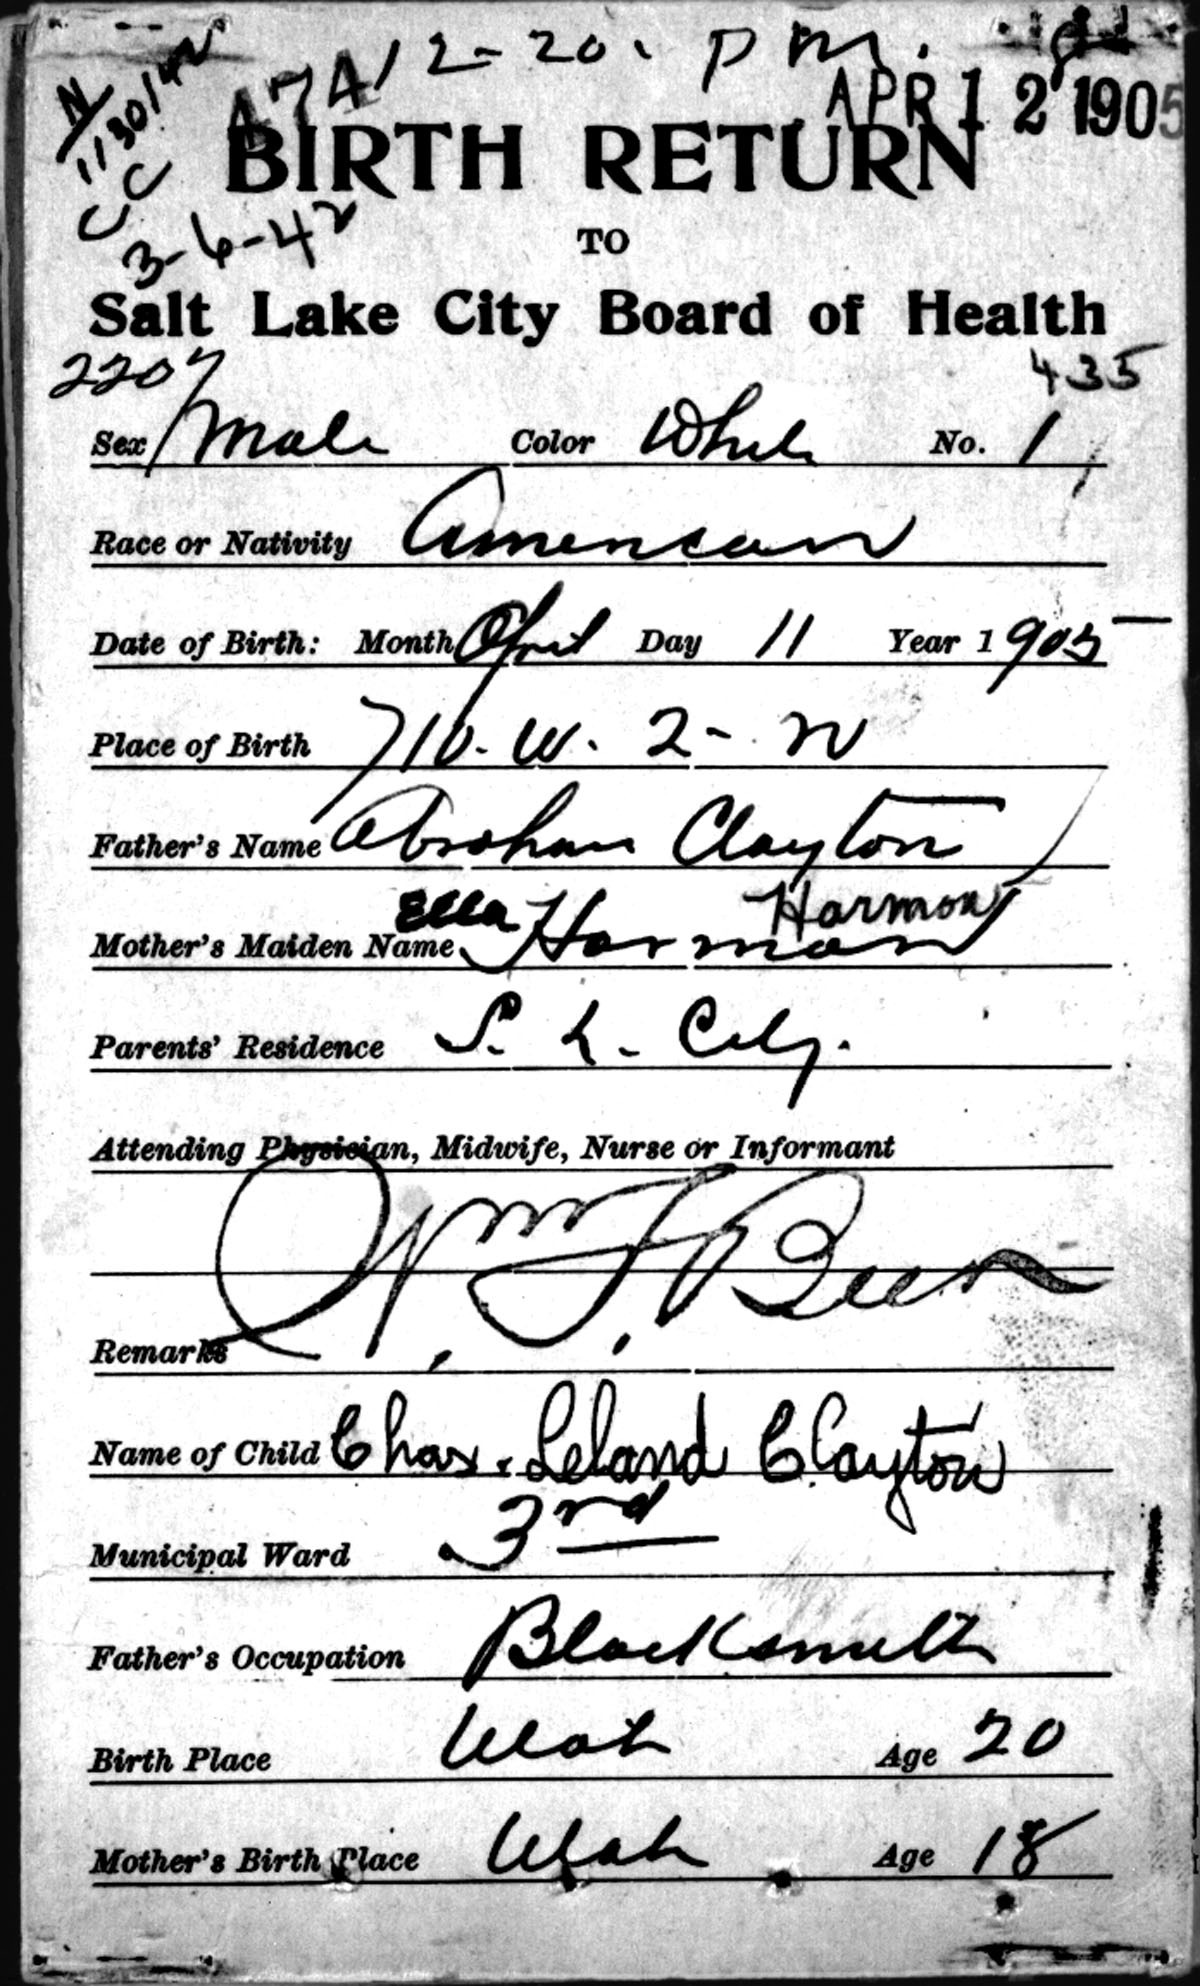 N
1130/42
CC
3-6-42
474 12-20. P m.
APR 12 1905
BIRTH RETURN
TO
Salt Lake City Board of Health
2207 435
Sex Male Color White No. 1
Race or Nativity American
Date of Birth: Month April Day 11 Year 1 905
Place of Birth 710. W. 2- N
Father's Name Abraham Clayton
Ella Harmon
Mother's Maiden Name Harman
Parents' Residence S. L. City.
Attending Physician, Midwife, Nurse or Informant
Wm. F. Beer
Remarks
Name of Child Chas. Leland Clayton
Municipal Ward 3rd
Father's Occupation Blacksmith
Birth Place Utah Age 20
Mother's Birth Place Utah Age 18